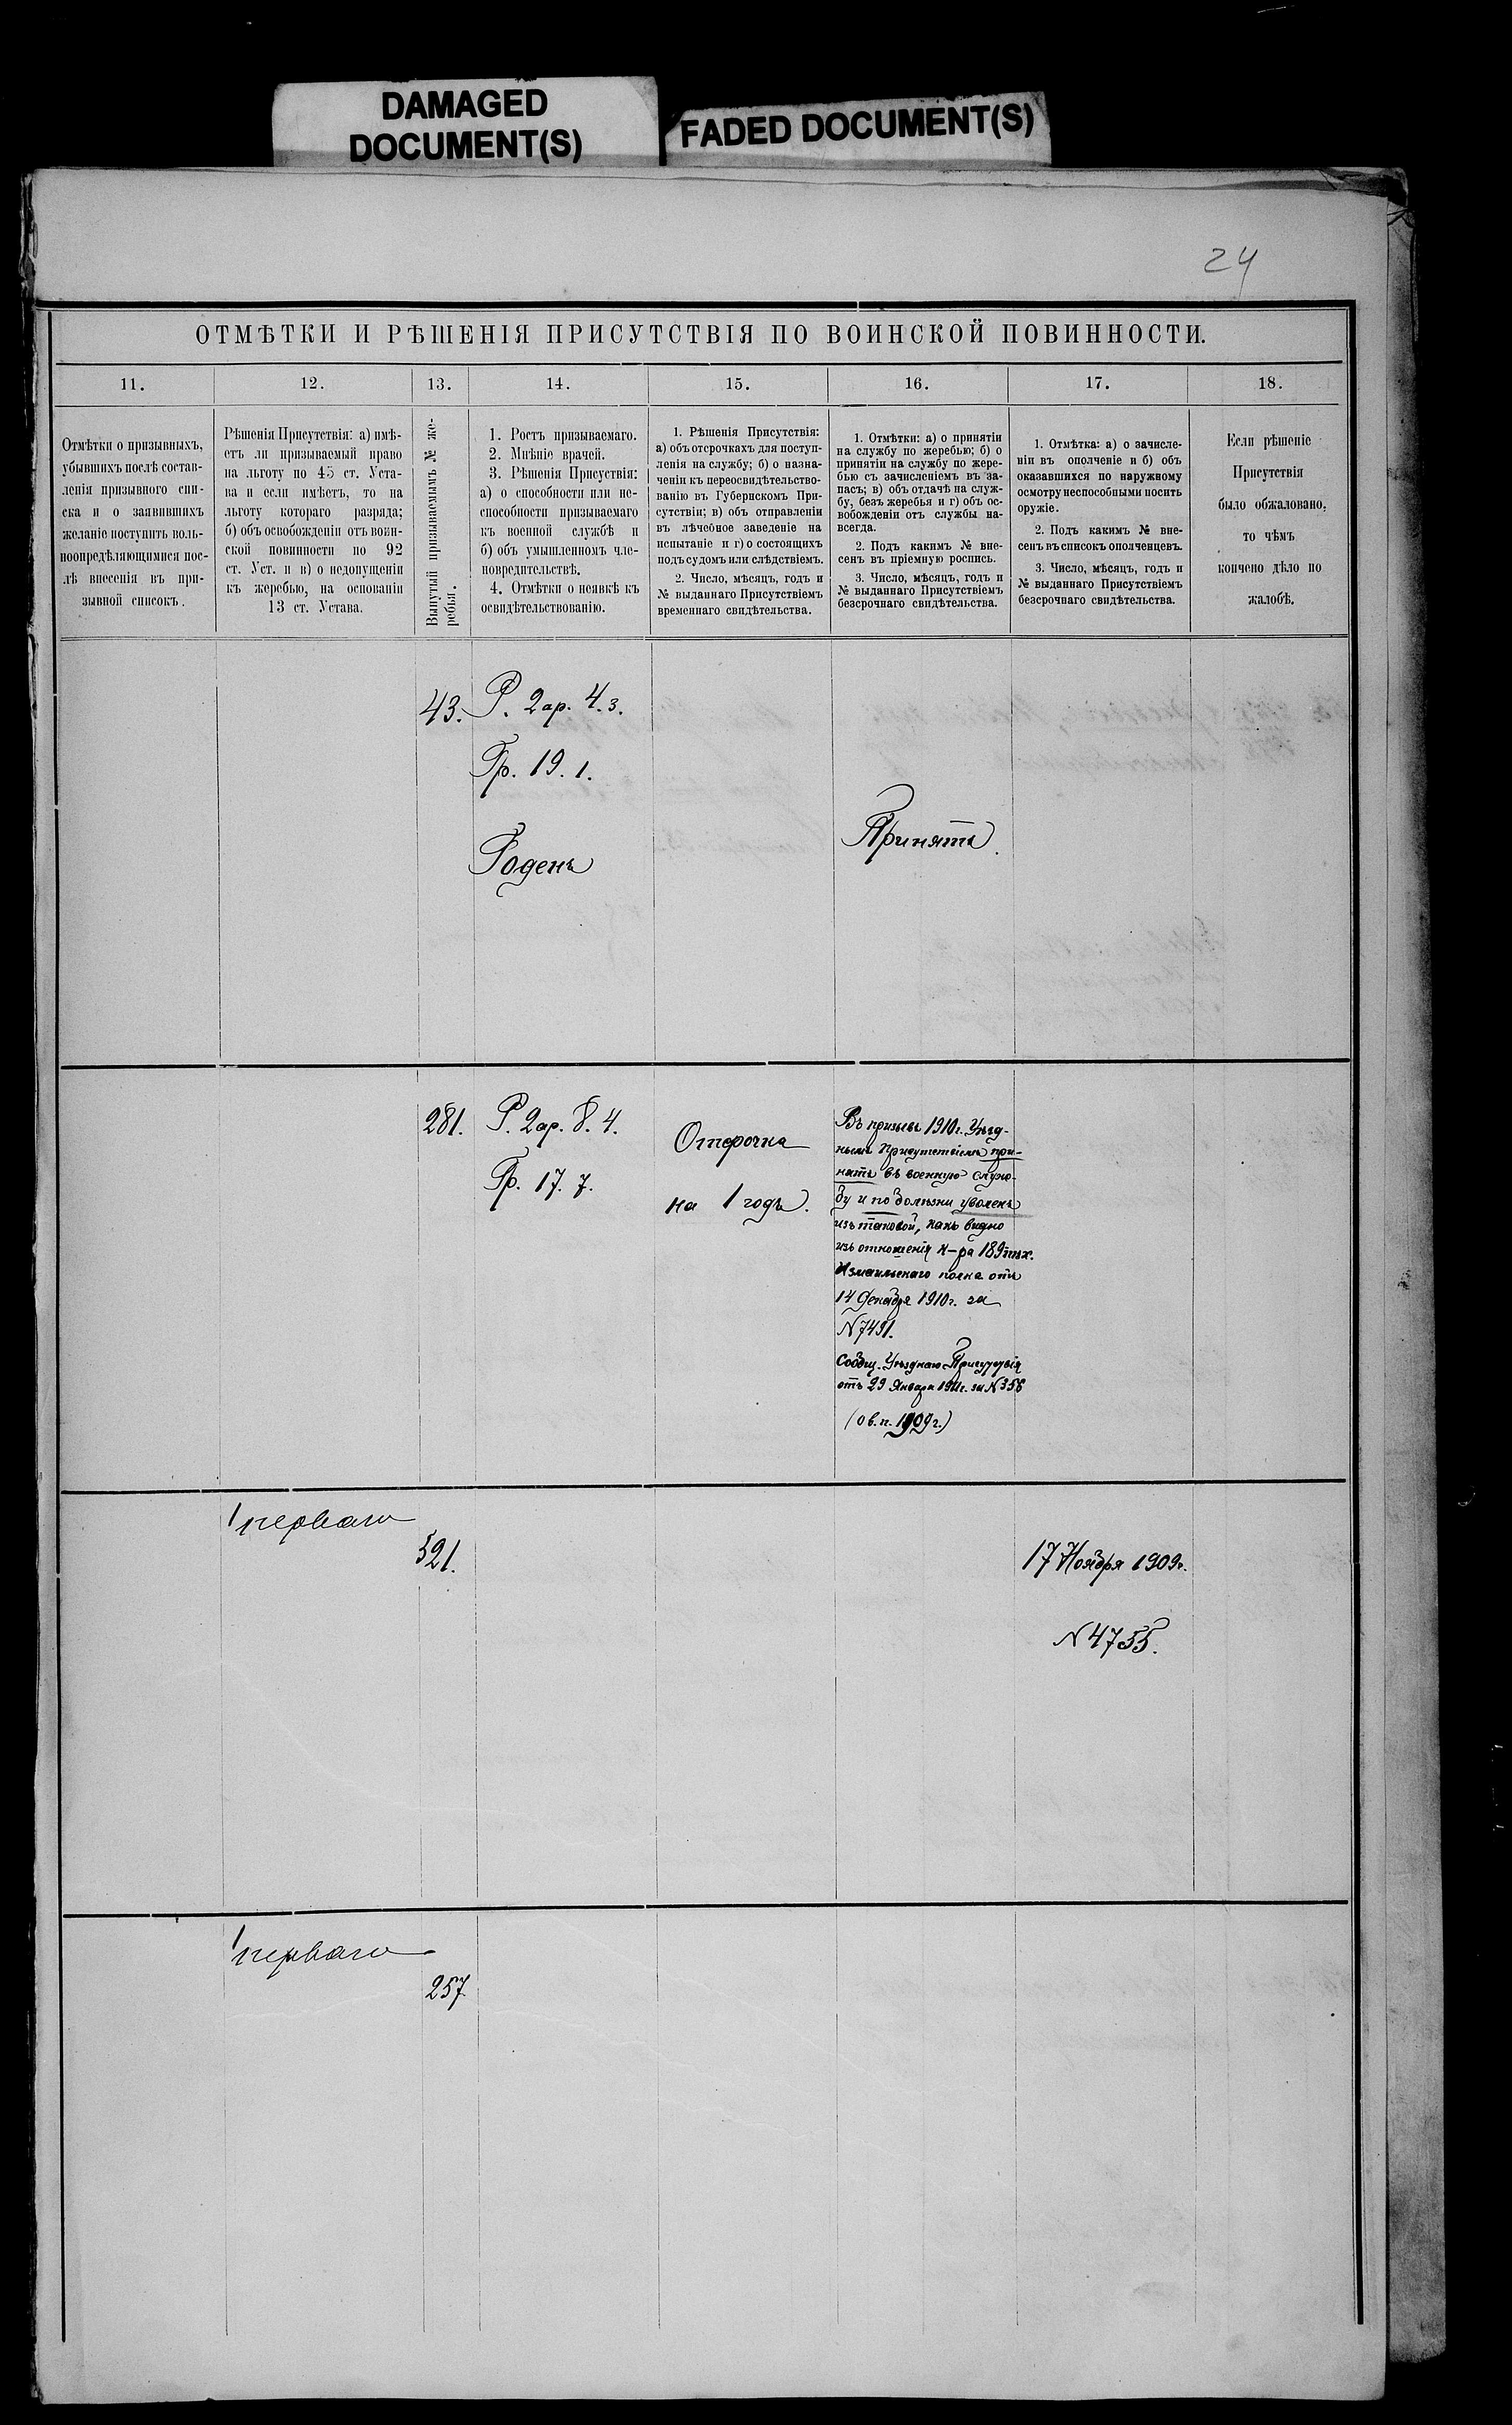 DAMAGED
DOCUMENT(S)
FADED DOCUMENT(S)
24
ОТМѢТКИ И РѢШЕНІЯ ПРИСУТСТВІЯ ПО ВОИНСКОЙ ПОВИННОСТИ.
11.
12.
13.
14.
15.
16.
17.
18.
Отмѣтки о призывныхъ,
убывшихъ послѣ состав-
ленія призывного спи-
ска и о заявившихъ
желаніе поступить воль-
ноопредѣляющимися пос-
лѣ внесенія въ при-
зывной списокъ.
Рѣшенія Присутствія: а) имѣ-
етъ ли призываемый право
на льготу по 45 ст. Уста-
ва и если имѣетъ, то на
льготу котораго разряда;
б) объ освобожденіи отъ воин-
ской повинности по 92
ст. Уст. и в) о недопущеніи
къ жеребью, на основаніи
13 ст. Устава.
Вынутый призываемымъ № же-
ребья.
1. Ростъ призываемаго.
2. Мнѣніе врачей.
3. Рѣшенія Присуствія:
а) о способности или не-
способности призываемаго
къ военной службѣ и
б) объ умышленномъ чле-
новредительствѣ.
4. Отмѣтки о неявкѣ къ
освидѣтельствованію.
1. Рѣшенія Присутствія:
а) объ отсрочкахъ для поступ-
ленія на службу; б) о назна-
ченіи къ переосвидѣтельство-
ванію въ Губернскомъ При-
сутствіи; в) объ отправленіи
въ лѣчебное заведеніе на
испытаніе и г) о состоящихъ
подъ судомъ или слѣдствіемъ.
2. Число, мѣсяцъ, годъ и
№ выданнаго Присутствіемъ
временнаго свидѣтельства.
1. Отмѣтки: а) о принятіи
на службу по жеребью; б) о
принятіи на службу по жере-
бью съ зачисленіемъ въ за-
пасъ; в) объ отдачѣ на служ-
бу, безъ жеребья и г) объ ос-
вобожденіи отъ службы на-
всегда.
2. Подъ какимъ № вне-
сенъ въ пріемную роспись.
3. Число, мѣсяцъ, годъ и
№ выданнаго Присутствіемъ
безсрочнаго свидѣтельства.
1. Отмѣтка: а) о зачисле-
ніи въ ополченіе и б) объ
оказавшихся по наружному
осмотру неспособными носить
оружіе.
2. Подъ какимъ № вне-
сенъ въ списокъ ополченцевъ.
3. Число, мѣсяцъ, годъ и
№ выданнаго Присутствіемъ
безсрочнаго свидѣтельства.
Если рѣшеніе
Присутствія
было обжаловано,
то чѣмъ
кончено дѣло по
жалобѣ.
43.
Р. 2 ар. 4. 3.
Гр. 19. 1.
Годенъ
Принятъ.
281.
Р. 2 ар. 8. 4.
Гр. 17. 7.
Отсрочка
на 1 годъ.
Въ призывъ 1910 г. Уѣзд-
нымъ Присутствіемъ при-
нятъ въ военную служ-
бу и по болѣзни уволенъ
изъ таковой, какъ видно
изъ отношенія К-ра 189 пѣх.
Измаильскаго полка отъ
14 Декабря 1910 г. за
N 7491.
Сообщ. Уѣзднаго Присутствія
отъ 29 Января 1911 г. за N 356
(о в. п. 1909 г.)
перваго
521.
17 Ноября 1909 г.
N 4755.
перваго
257